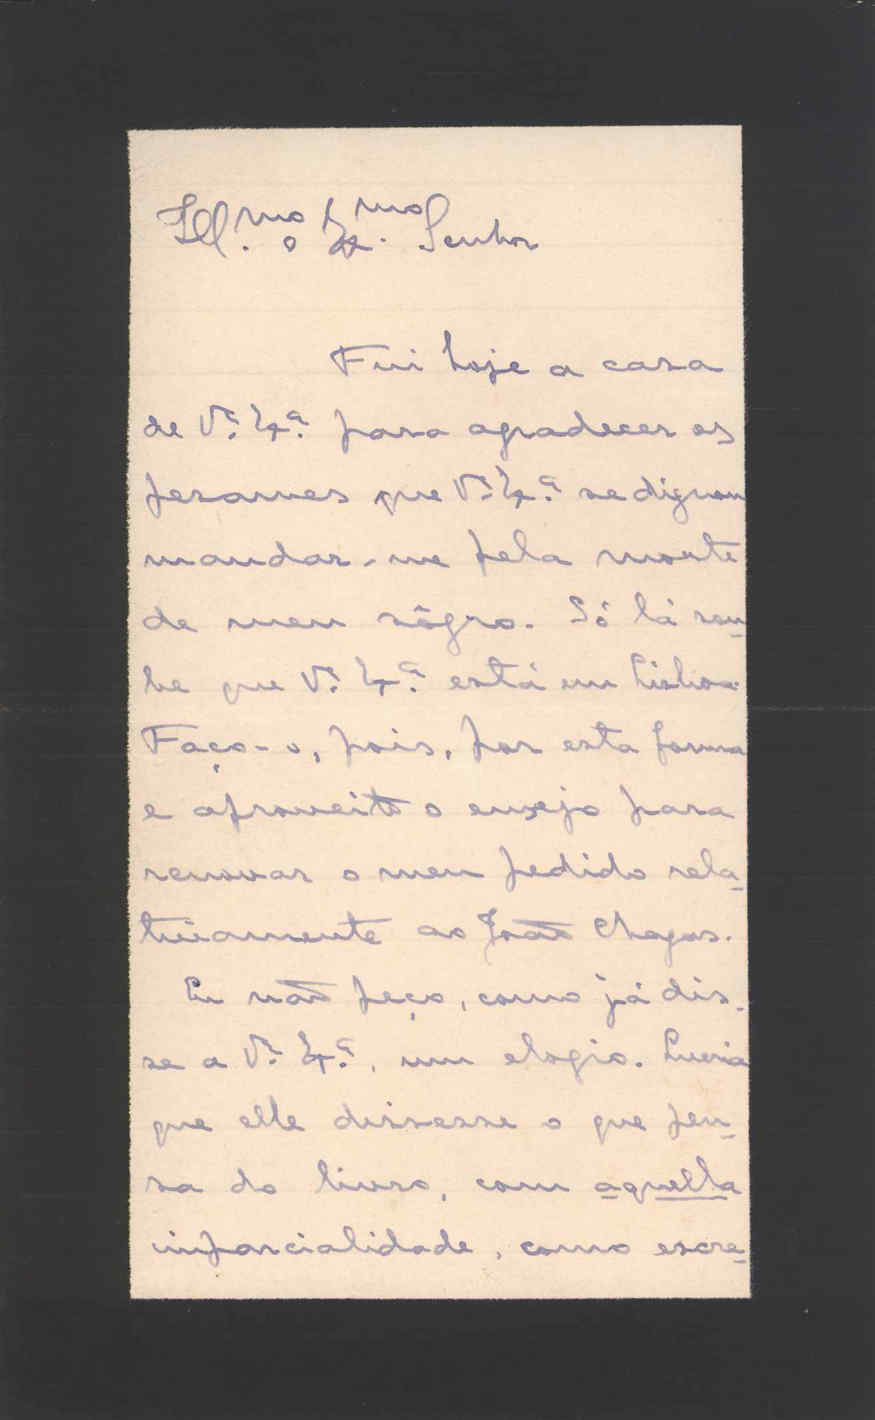 Ill.mo e Ex.mo Senhor
Fui hoje a casa
de V.ª Ex.ª para agradecer os
pezames que V.ª Ex.ª se dignou
mandar-me pela morte
de meu sôgro. Só lá sou-
be que V.ª Ex.ª está em Lisboa.
Faço-o, pois, por esta forma
e aproveito o ensejo para
renovar o meu pedido rela-
tivamente ao João Chagas.
Eu não peço, como já dis-
se a V.ª Ex.ª, um elogio. Queria
que elle dissesse o que pen-
sa do livro, com aquella
imparcialidade, como escre-